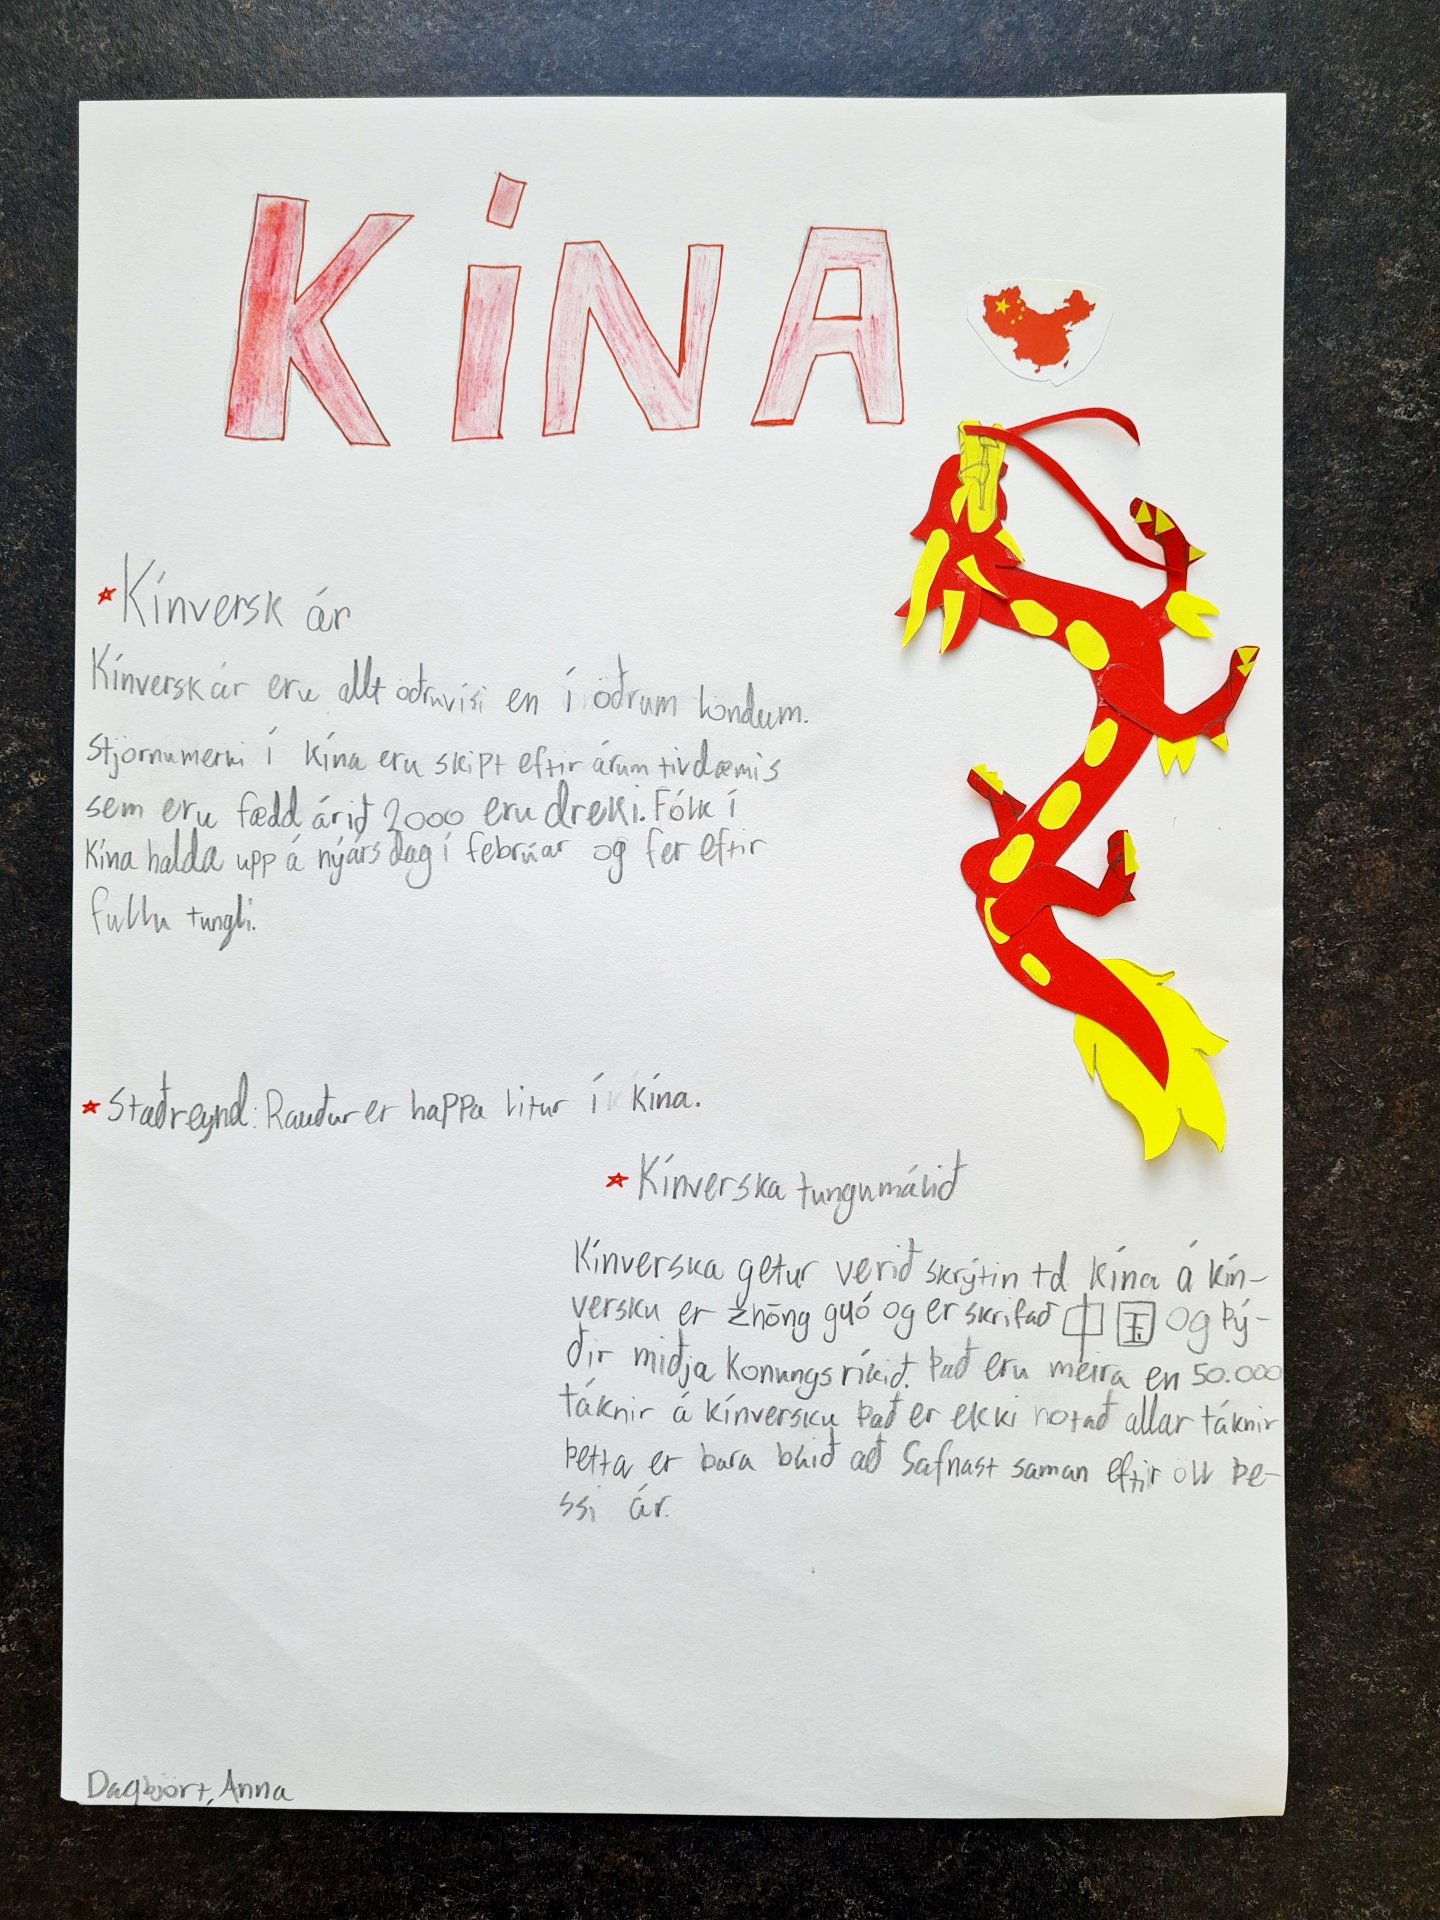 KíNA
Kínversk ár
Kínversk ár eru allt öðruvísi en í öðrum löndum.
Stjörnumerki í Kína eru skipt eftir árum tivdæmis
sem eru fædd árið 2000 eru dreki. Fólk í
Kína halda upp á nýársdag í febrúar og fer eftir
fullu tungli.
Staðreynd: Rauður er happa litur í Kína.
Kínverska tungumálið
Kínverska getur verið skrýtin td Kína á kín-
versku er zhōng guó og er skrifað 中国 og þý-
ðir miðja Konungsríkið. Það eru meira en 50.000
táknir á kínversku það er ekki notað allar táknir
þetta er bara búið að safnast saman eftir öll þe-
ssi ár.
Dagbjört, Anna